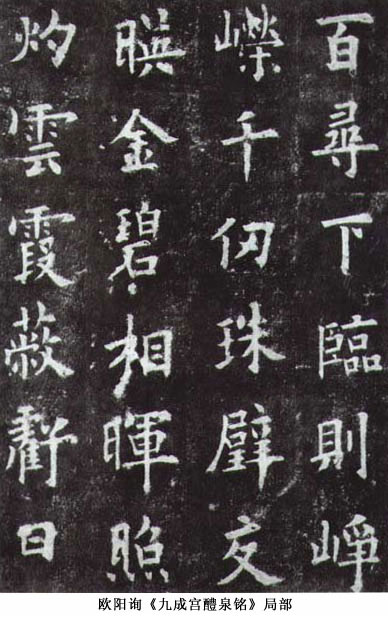 百尋下臨則崢
嶸千仞珠璧交
暎金碧相暉照
灼雲霞蔽虧日
欧阳询《九成宫醴泉铭》局部